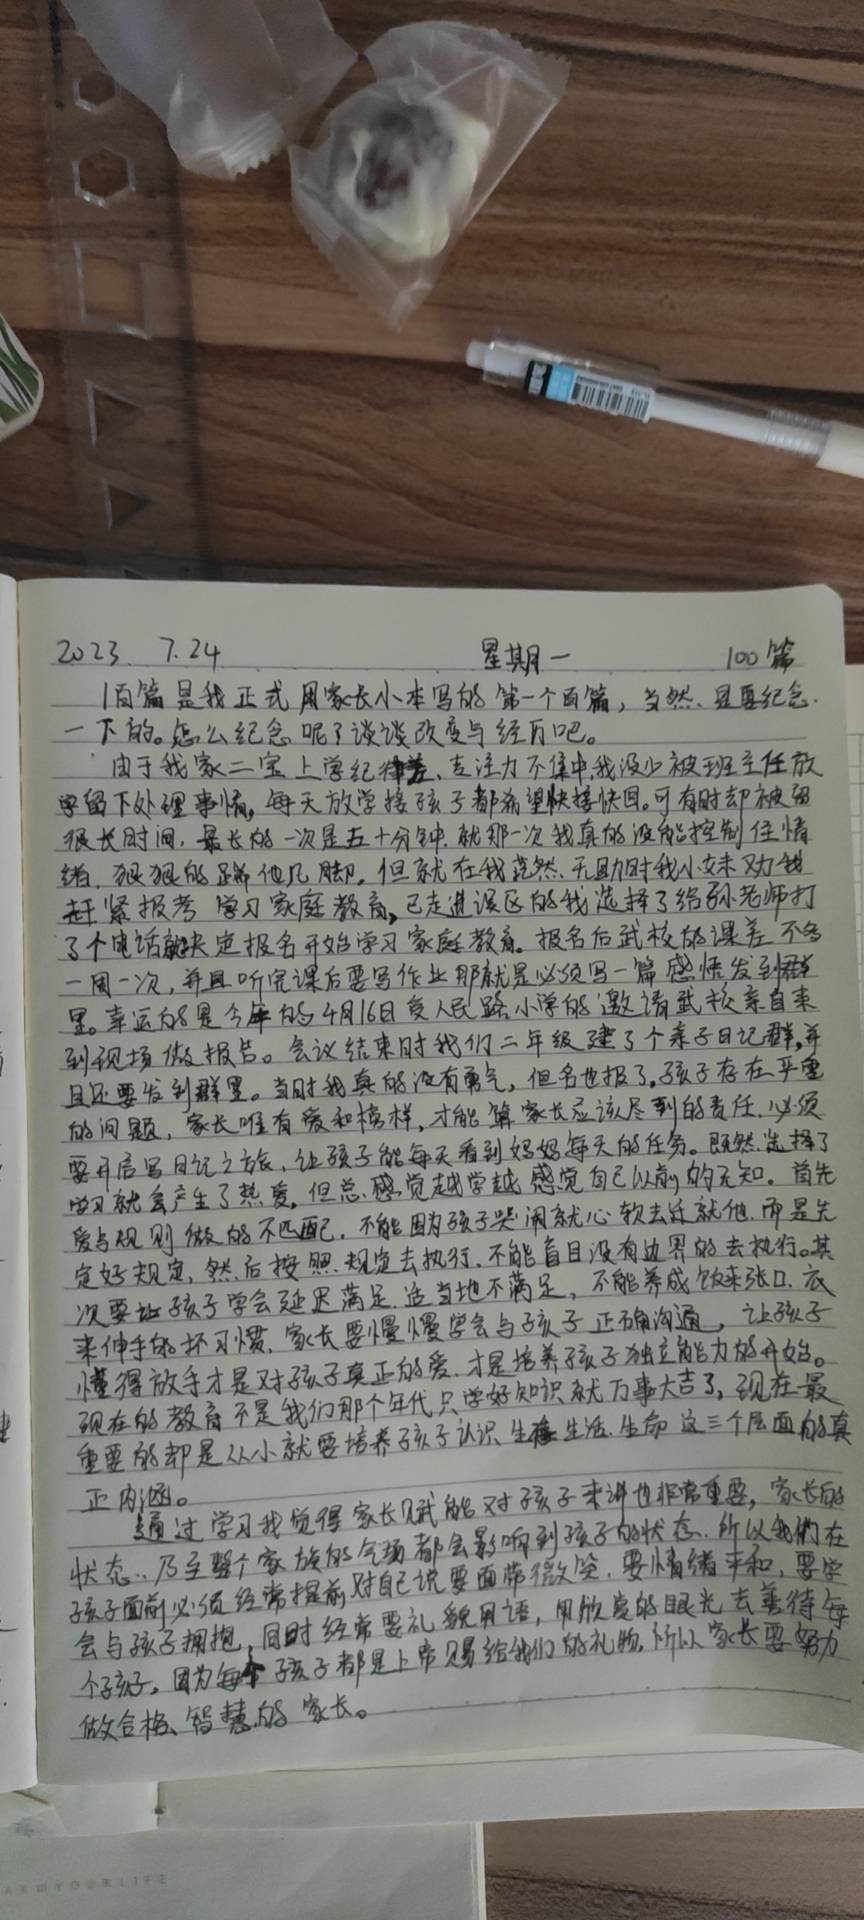 2023. 7.24 星期一 100篇
100篇是我正式用家长小本写的第一个百篇，当然.是要纪念.
一下的。怎么纪念呢？谈谈改变与经历吧。
由于我家二宝上学纪律差、专注力不集中,我没少被班主任放
学留下处理事情，每天放学接孩子都希望快接快回。可有时却被留
很长时间，最长的一次是五十分钟.就那一次我真的没能控制住情
绪，狠狠的踹他几脚。但就在我茫然、无助时我小妹劝我
赶紧报考学习家庭教育，已走进误区的我选择了给孙老师打
了个电话就决定报名开始学习家庭教育。报名后武校的课差不多
一周一次，并且听完课后要写作业那就是必须写一篇感悟发到群
里。幸运的是今年的4月16日受人民路小学的邀请武校亲自来
到现场做报告。会议结束时我们二年级建了个亲子日记群，并
且还要发到群里。当时我真的没有勇气，但名也报了。孩子存在严重
的问题，家长唯有爱和榜样，才能算家长应该尽到的责任.必须
要开启写日记之旅，让孩子能每天看到妈妈每天的任务。既然选择了
学习就会产生了热爱，但总感觉越学越感觉自己以前的无知。首先
爱与规则做的不匹配，不能因为孩子哭闹就心软去迁就他.而是先
定好规定，然后按照规定去执行.不能盲目没有边界的去执行。其
次要让孩子学会延迟满足.适当地不满足，不能养成饭来张口、衣
来伸手的坏习惯.家长要慢慢学会与孩子正确沟通，让孩子
懂得放手才是对孩子真正的爱.才是培养孩子独立能力的开始。
现在的教育不是我们那个年代只学好知识就万事大吉了，现在最
重要的却是从小就要培养孩子认识生存生活.生命这三个层面的真
正内涵。
通过学习我觉得家长赋能对孩子来讲也非常重要，家长的
状态..乃至整个家族的气场都会影响到孩子的状态.所以我们在
孩子面前必须经常提前对自己说要面带微笑.要情绪平和，要学
会与孩子拥抱，同时经常要礼貌用语，用欣赏的眼光去善待每
个孩子，因为每个孩子都是上帝赐给我们的礼物.所以家长要努力
做合格、智慧的家长。